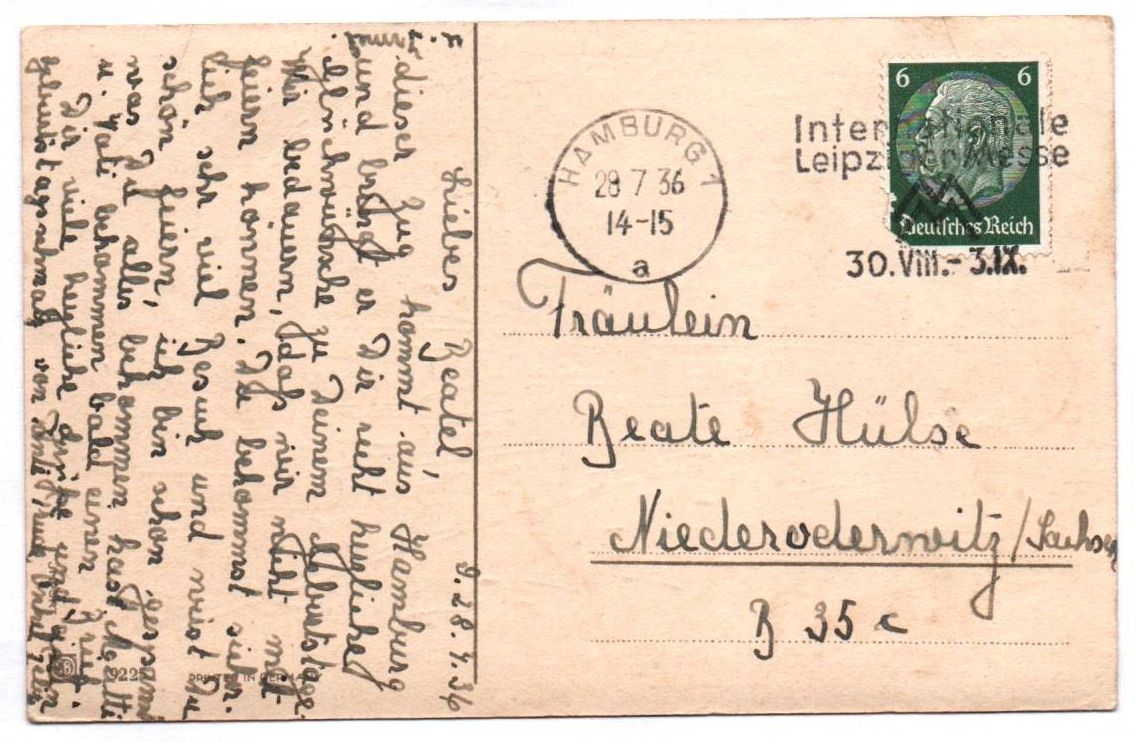 Liebes Beatel, d. 28.7.36
dieser Zug kommt aus Hamburg
und bringt er Dir recht herzliche
Glückwünsche zu Deinem Geburtstage.
Wir bedauern, daß wir nicht mit
feiern können. Du bekommst sicher-
lich sehr viel Besuch und wirst Du
schön feiern, ich bin schon gespannt
was Du alles bekommen hast. Mutti
u. Vati bekommen bald einen Brief.
Dir viele herzliche Grüße und
Geburtstagsschmatz von
u.
9225
PRINTED IN GERMANY
HAMBURG 1
28 7 36
14-15
a
Internationale
Leipziger Messe
30.VIII.-3.IX.
6 6
Deutsches Reich
Fräulein
Beate Hülse
Niederoderwitz/Sachsen
B 35 c